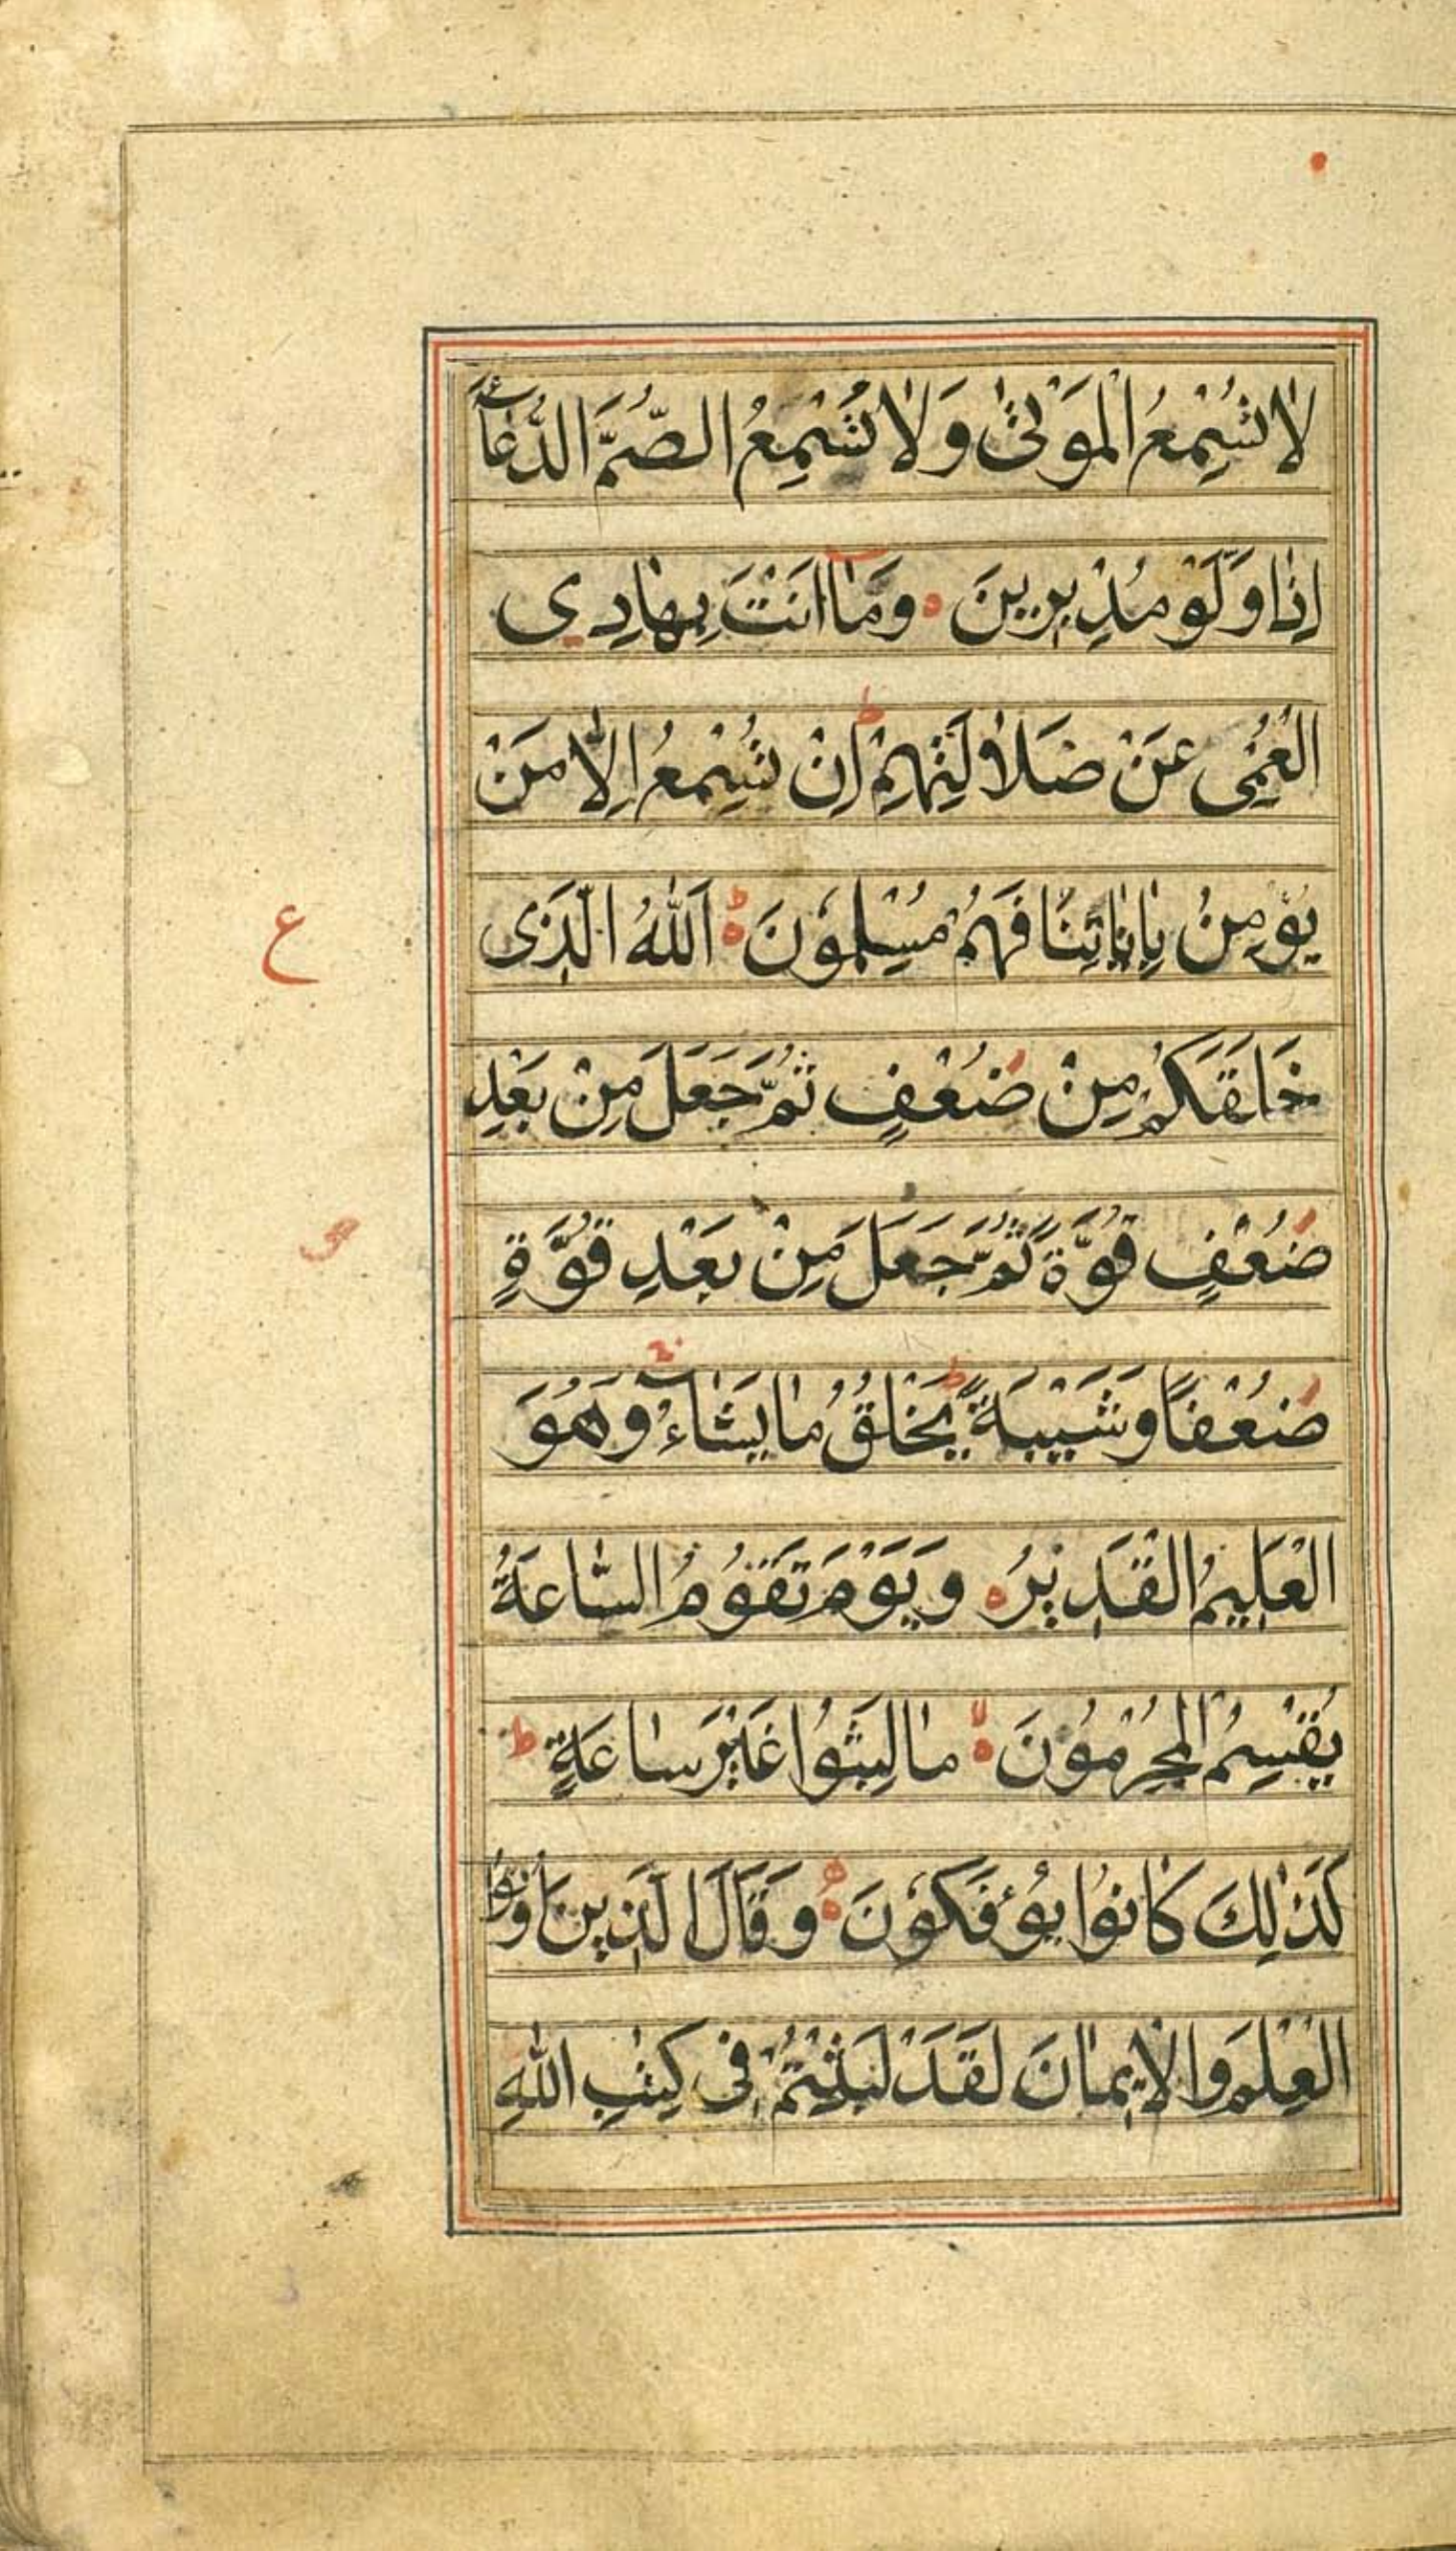 لَا تُسْمِعُ الْمَوْتٰى وَلَا تُسْمِعُ الصُّمَّ الدُّعَآءَ
اِذَا وَلَّوْ مُدْبِرِينَ ۝ وَمَآ اَنْتَ بِهَادِى
الْعُمْىِ عَنْ ضَلَالَتِهِمْ ط اِنْ تُسْمِعُ اِلَّا مَنْ
يُؤْمِنُ بِاٰيَاتِنَا فَهُمْ مُسْلِمُوْنَ ۝ ط اَللّٰهُ الَّذِى
ع
خَلَقَكُمْ مِنْ ضُعْفٍ ثُمَّ جَعَلَ مِنْ بَعْدِ
ضُعْفٍ قُوَّةً ثُمَّ جَعَلَ مِنْ بَعْدِ قُوَّةٍ
ضُعْفًا وَشَيْبَةً ط يَخْلُقُ مَا يَشَآءُ وَهُوَ
الْعَلِيْمُ الْقَدِيْرُ ۝ وَيَوْمَ تَقُوْمُ السَّاعَةُ
يُقْسِمُ الْمُجْرِمُوْنَ ۝ لا مَا لَبِثُوْا غَيْرَ سَاعَةٍ ط
كَذٰلِكَ كَانُوْا يُؤْفَكُوْنَ ۝ وَقَالَ الَّذِيْنَ اُوْتُوا
الْعِلْمَ وَالْاِيْمَانَ لَقَدْ لَبِثْتُمْ فِى كِتٰبِ اللّٰهِ